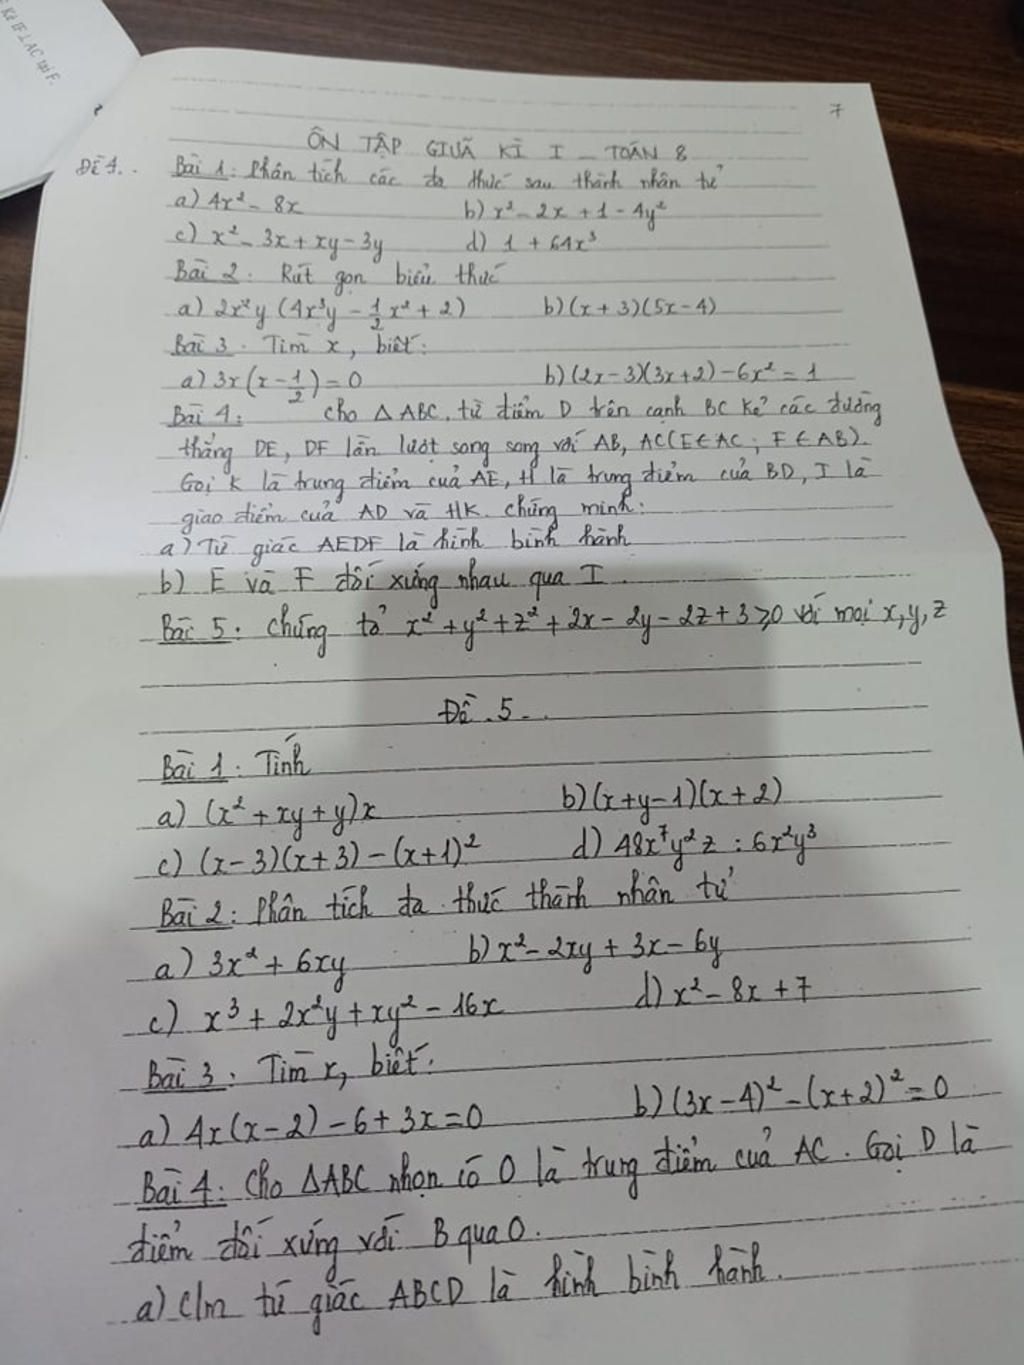 Kẻ IF ⊥ AC tại F.
7
ÔN TẬP GIỮA KÌ I - TOÁN 8
ĐỀ 4..
Bài 1: Phân tích các đa thức sau thành nhân tử
a) 4x² - 8x b) x² - 2x + 1 - 4y²
c) x² - 3x + xy - 3y d) 1 + 64x³
Bài 2: Rút gọn biểu thức
a) 2x²y (4x³y - 1/2 x² + 2) b) (x + 3)(5x - 4)
Bài 3. Tìm x, biết:
a) 3x(x - 1/2) = 0 b) (2x - 3)(3x + 2) - 6x² = 1
Bài 4: cho △ABC. từ điểm D trên cạnh BC kẻ các đường
thẳng DE, DF lần lượt song song với AB, AC (E∈AC; F∈AB).
Gọi K là trung điểm của AE, H là trung điểm của BD, I là
giao điểm của AD và HK. chứng minh:
a) Tứ giác AEDF là hình bình hành
b) E và F đối xứng nhau qua I.
Bài 5: chứng tỏ x² + y² + z² + 2x - 2y - 2z + 3 ⩾ 0 với mọi x, y, z
Đề .5..
Bài 1: Tính
a) (x² + xy + y)x b) (x + y - 1)(x + 2)
c) (x - 3)(x + 3) - (x + 1)² d) 48x⁷y²z : 6x²y³
Bài 2: Phân tích đa thức thành nhân tử
a) 3x² + 6xy b) x² - 2xy + 3x - 6y
c) x³ + 2x²y + xy² - 16x d) x² - 8x + 7
Bài 3: Tìm x, biết:
a) 4x(x - 2) - 6 + 3x = 0 b) (3x - 4)² - (x + 2)² = 0
Bài 4: Cho △ABC nhọn có O là trung điểm của AC. Gọi D là
điểm đối xứng với B qua O.
a) C/m tứ giác ABCD là hình bình hành.